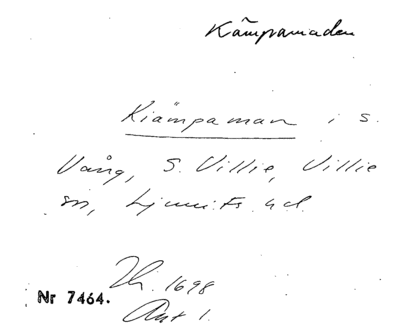 Kämpamaden
Kiämpaman i s.
Vång, S. Villie, Villie
sn, Ljunits hd.
1698
Nr 7464.
Akt 1.